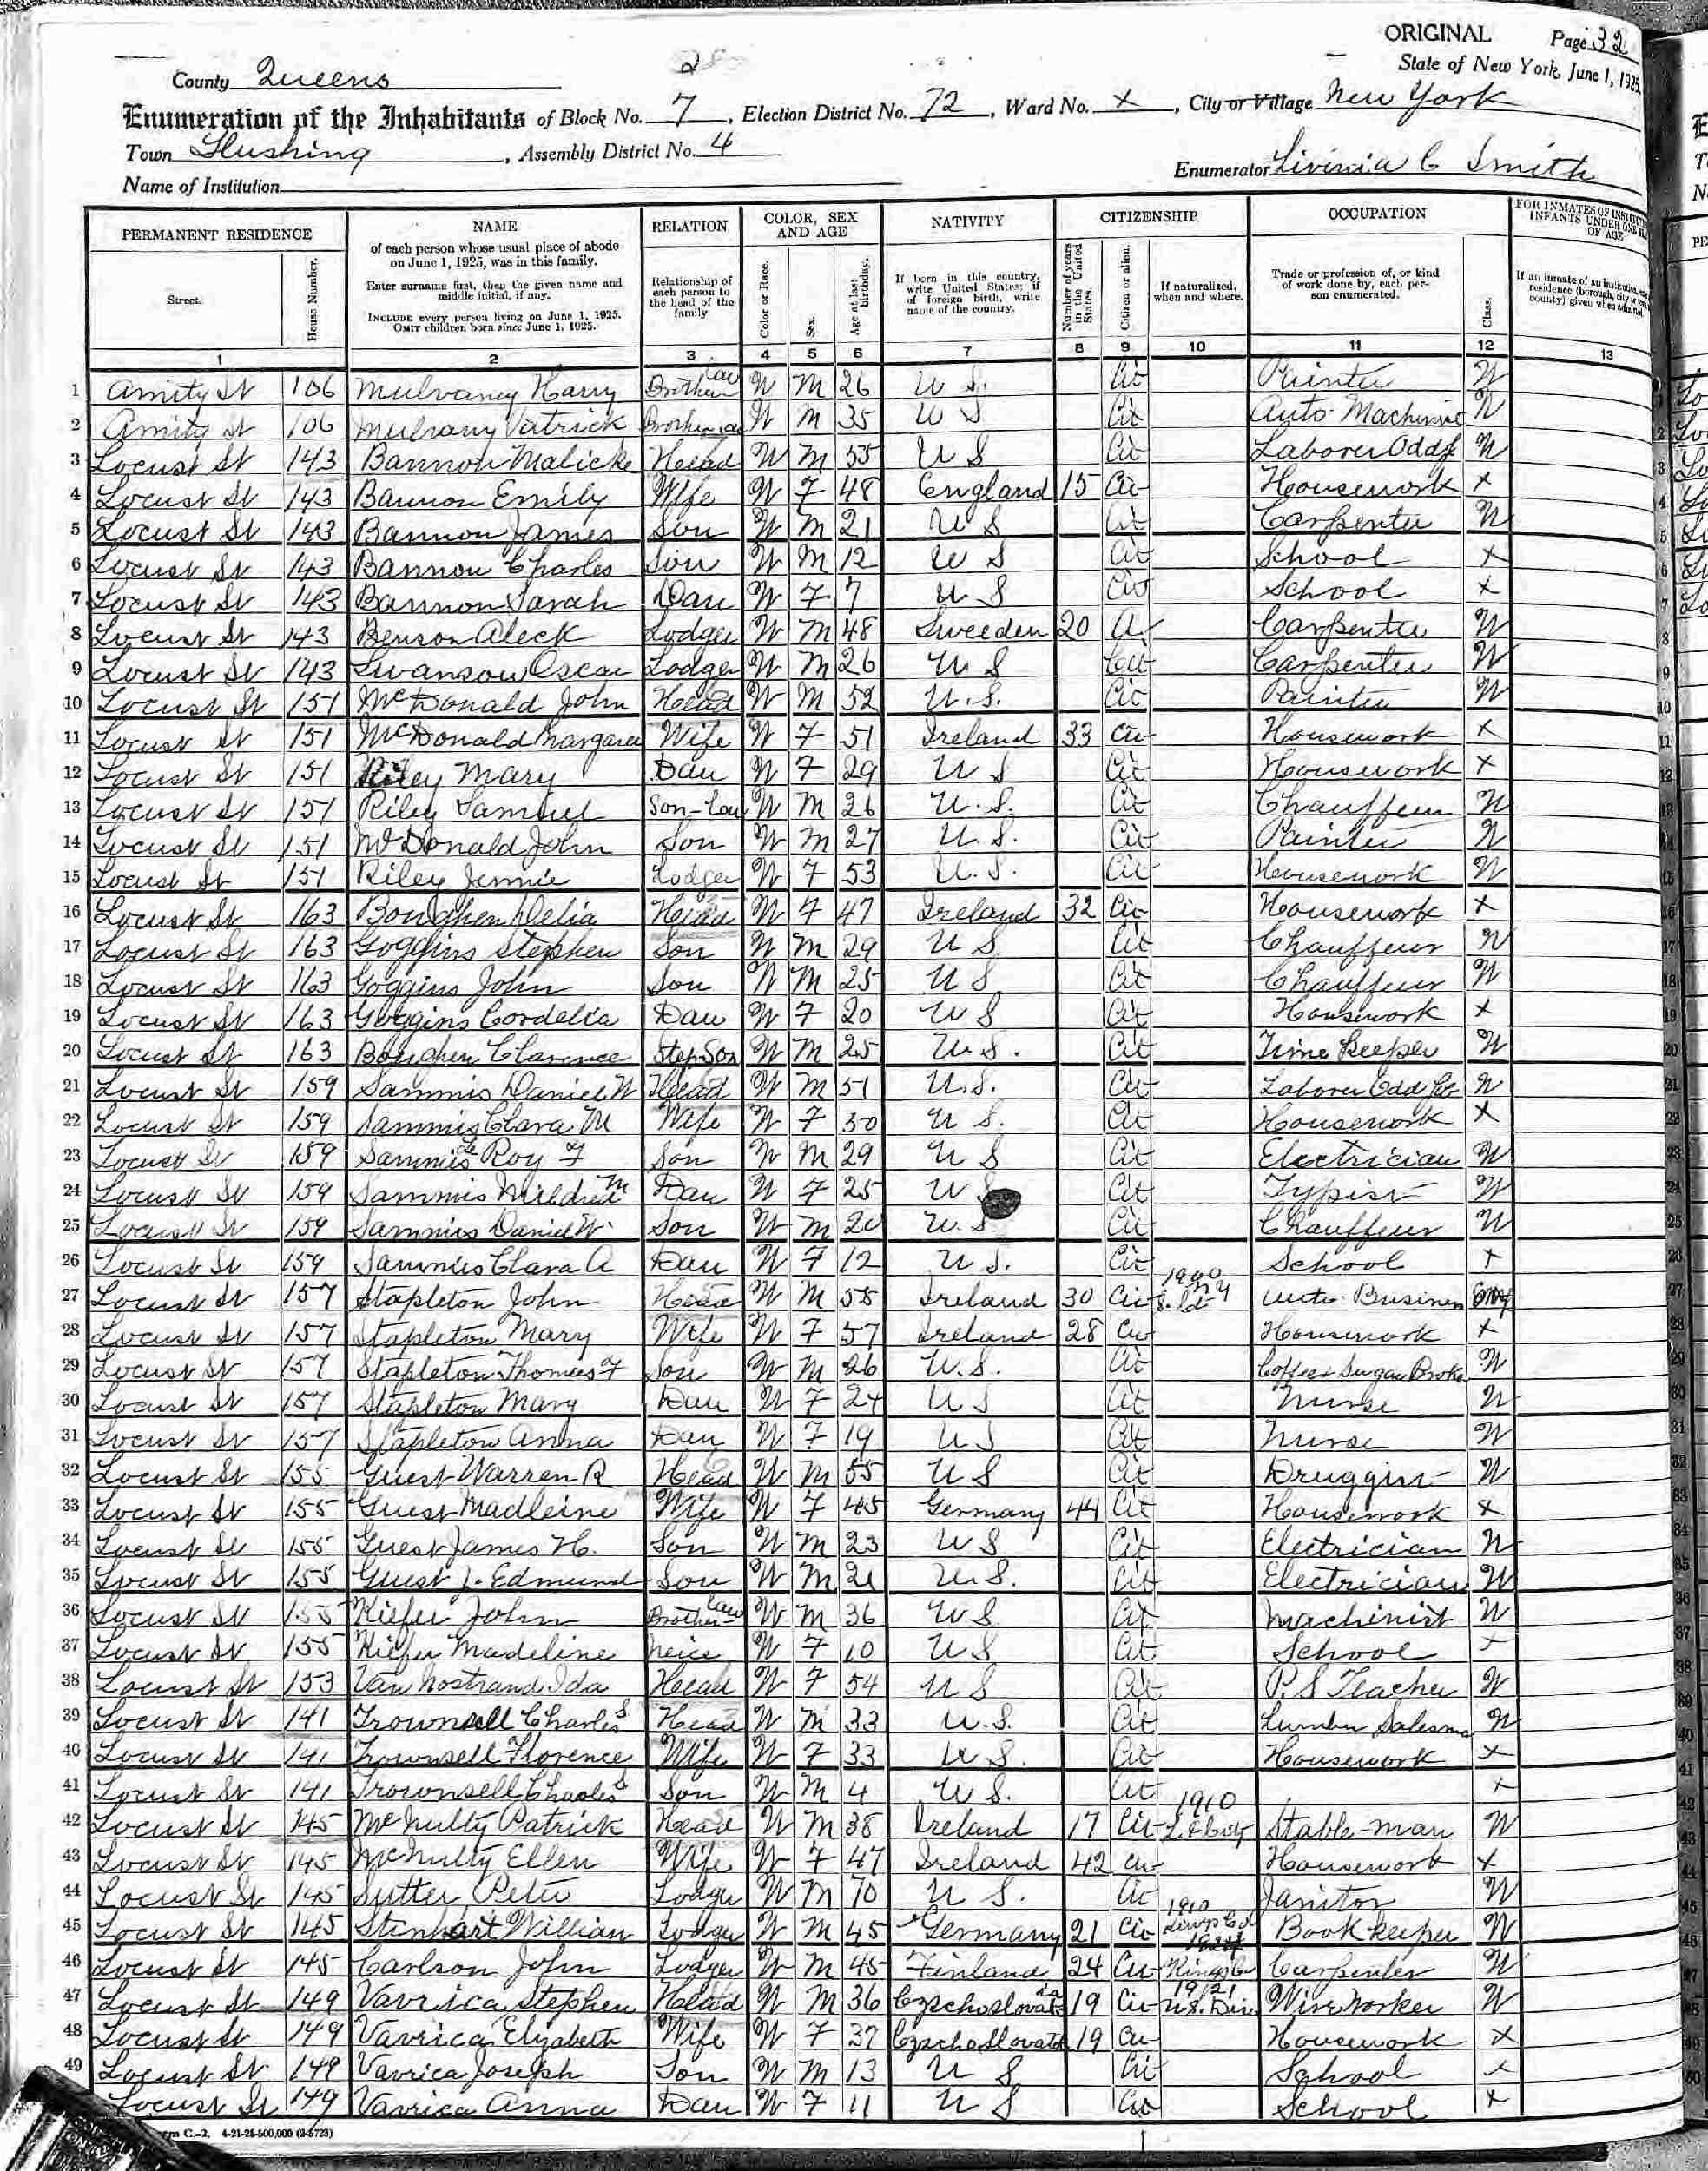 ORIGINAL Page 32
State of New York, June 1, 1925.
County Queens 28
Enumeration of the Inhabitants of Block No. 7, Election District No. 72, Ward No. x, City or Village New York
Town Flushing, Assembly District No. 4
Enumerator Livinia C Smith
Name of Institution
PERMANENT RESIDENCE NAME RELATION COLOR, SEX AND AGE NATIVITY CITIZENSHIP OCCUPATION
Street. House Number. of each person whose usual place of abode on June 1, 1925, was in this family. Enter surname first, then the given name and middle initial, if any. INCLUDE every person living on June 1, 1925. OMIT children born since June 1, 1925. Relationship of each person to the head of the family Color or Race. Sex. Age at last birthday. If born in this country, write United States; if of foreign birth, write name of the country. Number of years in the United States. Citizen or alien. If naturalized, when and where. Trade or profession of, or kind of work done by, each person enumerated. Class.
1 2 3 4 5 6 7 8 9 10 11 12 13
1 Amity St 106 Mulvaney Harry Brother law W M 26 U S. Cit Painter W
2 Amity St 106 Mulvany Patrick Brother law W M 35 U S Cit Auto Machinist W
3 Locust St 143 Bannon Malicke Head W M 55 U S Cit Laborer Odd W
4 Locust St 143 Bannon Emily Wife W F 48 England 15 Cit Housework x
5 Locust St 143 Bannon James Son W M 21 U S Cit Carpenter W
6 Locust St 143 Bannon Charles Son W M 12 U S Cit School x
7 Locust St 143 Bannon Sarah Dau W F 7 U S Cit School x
8 Locust St 143 Benson Aleck Lodger W M 48 Sweeden 20 A Carpenter W
9 Locust St 143 Swanson Oscar Lodger W M 26 U S Cit Carpenter W
10 Locust St 151 McDonald John Head W M 52 U.S. Cit Painter W
11 Locust St 151 McDonald Margaret Wife W F 51 Ireland 33 Cit Housework x
12 Locust St 151 Riley Mary Dau W F 29 U S Cit Housework x
13 Locust St 151 Riley Samuel Son-law W M 26 U.S. Cit Chauffeur W
14 Locust St 151 McDonald John Son W M 27 U.S. Cit Painter W
15 Locust St 151 Riley Jennie Lodger W F 53 U.S. Cit Housework W
16 Locust St 163 Boughen Delia Head W F 47 Ireland 32 Cit Housework x
17 Locust St 163 Goggins Stephen Son W M 29 U S Cit Chauffeur W
18 Locust St 163 Goggins John Son W M 25 U S Cit Chauffeur W
19 Locust St 163 Goggins Cordelia Dau W F 20 U S Cit Housework x
20 Locust St 163 Boughen Clarence Step Son W M 25 U.S. Cit Time Keeper W
21 Locust St 159 Sammis Daniel W Head W M 51 U.S. Cit Laborer Odd W
22 Locust St 159 Sammis Clara M Wife W F 50 U S. Cit Housework x
23 Locust St 159 Sammis Roy F Son W M 29 U S Cit Electrician W
24 Locust St 159 Sammis Mildred M Dau W F 25 U S Cit Typist W
25 Locust St 159 Sammis Daniel W. Son W M 20 U.S. Cit Chauffeur W
26 Locust St 159 Sammis Clara A Dau W F 12 U S. Cit School x
27 Locust St 157 Stapleton John Head W M 55 Ireland 30 Cit 1900 N Y Auto Business
28 Locust St 157 Stapleton Mary Wife W F 57 Ireland 28 Cit Housework x
29 Locust St 157 Stapleton Thomas F Son W M 26 U.S. Cit Coffee & Sugar Broker W
30 Locust St 157 Stapleton Mary Dau W F 24 U S Cit Nurse W
31 Locust St 157 Stapleton Anna Dau W F 19 U S Cit Nurse W
32 Locust St 155 Guest Warren R Head W M 55 U S Cit Druggist W
33 Locust St 155 Guest Madleine Wife W F 45 Germany 44 Cit Housework x
34 Locust St 155 Guest James H. Son W M 23 U S Cit Electrician W
35 Locust St 155 Guest J. Edmund Son W M 21 U.S. Cit Electrician W
36 Locust St 155 Kiefer John Brother law W M 36 U S Cit Machinist W
37 Locust St 155 Kiefer Madeline Neice W F 10 U S Cit School x
38 Locust St 153 Van Nostrand Ida Head W F 54 U S Cit P.S Teacher W
39 Locust St 141 Trownsell Charles S Head W M 33 U.S. Cit Lumber Salesman W
40 Locust St 141 Trownsell Florence Wife W F 33 U S. Cit Housework x
41 Locust St 141 Trownsell Charles S Son W M 4 U S. Cit x
42 Locust St 145 McNulty Patrick Head W M 38 Ireland 17 Cit 1910 Stable-man W
43 Locust St 145 McNulty Ellen Wife W F 47 Ireland 42 Cit Housework x
44 Locust St 145 Sutter Peter Lodger W M 70 U S. Cit Janitor W
45 Locust St 145 Stenhart William Lodger W M 45 Germany 21 Cit 1910 Kings Co Book keeper W
46 Locust St 145 Carlson John Lodger W M 45 Finland 24 Cit Kings Co Carpenter W
47 Locust St 149 Vavrica Stephen Head W M 36 Czechoslovakia 19 Cit 1921 Wire Worker W
48 Locust St 149 Vavrica Elizabeth Wife W F 37 Czechoslovak 19 Cit Housework x
49 Locust St 149 Vavrica Joseph Son W M 13 U S Cit School x
Locust St 149 Vavrica Anna Dau W F 11 U S Cit School x
4-21-25-500,000 (2-5723)